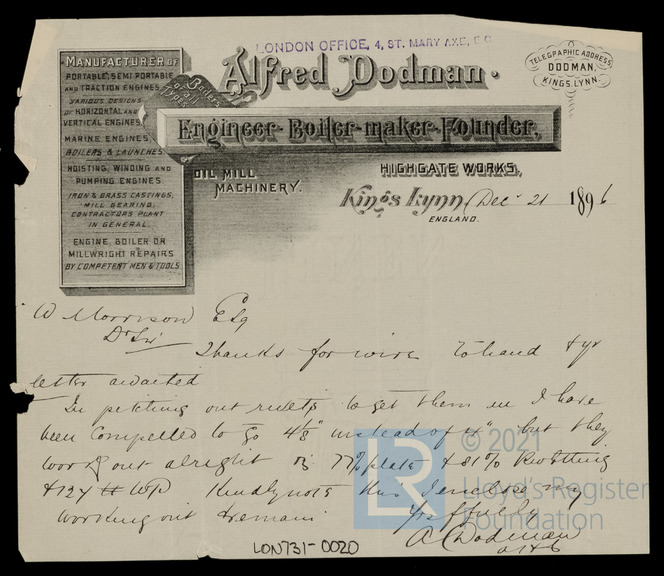 LONDON OFFICE, 4, ST. MARY AXE, E.C.
Alfred Dodman.
TELEGRAPHIC ADDRESS
DODMAN,
KINGS, LYNN.
Boilers
of all
Types.
Engineer-Boiler-maker-Founder,
OIL MILL
MACHINERY.
HIGHGATE WORKS,
Kings Lynn, Decr 21 1896
ENGLAND.
MANUFACTURER OF
PORTABLE, SEMI PORTABLE
AND TRACTION ENGINES,
VARIOUS DESIGNS
OF HORIZONTAL AND
VERTICAL ENGINES
MARINE ENGINES,
BOILERS & LAUNCHES
HOISTING, WINDING AND
PUMPING ENGINES.
IRON & BRASS CASTINGS,
MILL GEARING,
CONTRACTORS PLANT
IN GENERAL.
ENGINE, BOILER OR
MILLWRIGHT REPAIRS
BY COMPETENT MEN & TOOLS
W Morrison Esq
Dr Sir
Thanks for wire to hand & yr
letter awaited
In pitching out rivets to get them in I have
been compelled to go 4 1/8" instead of 4" but they
work out alright 77% plate & 81% Rivetting
& 124 lb WP Kindly note this I enclose my
working out & remain
Yrs ffully
A Dodman
LON731-0020
LR
© 2021
Lloyd's Register
Foundation